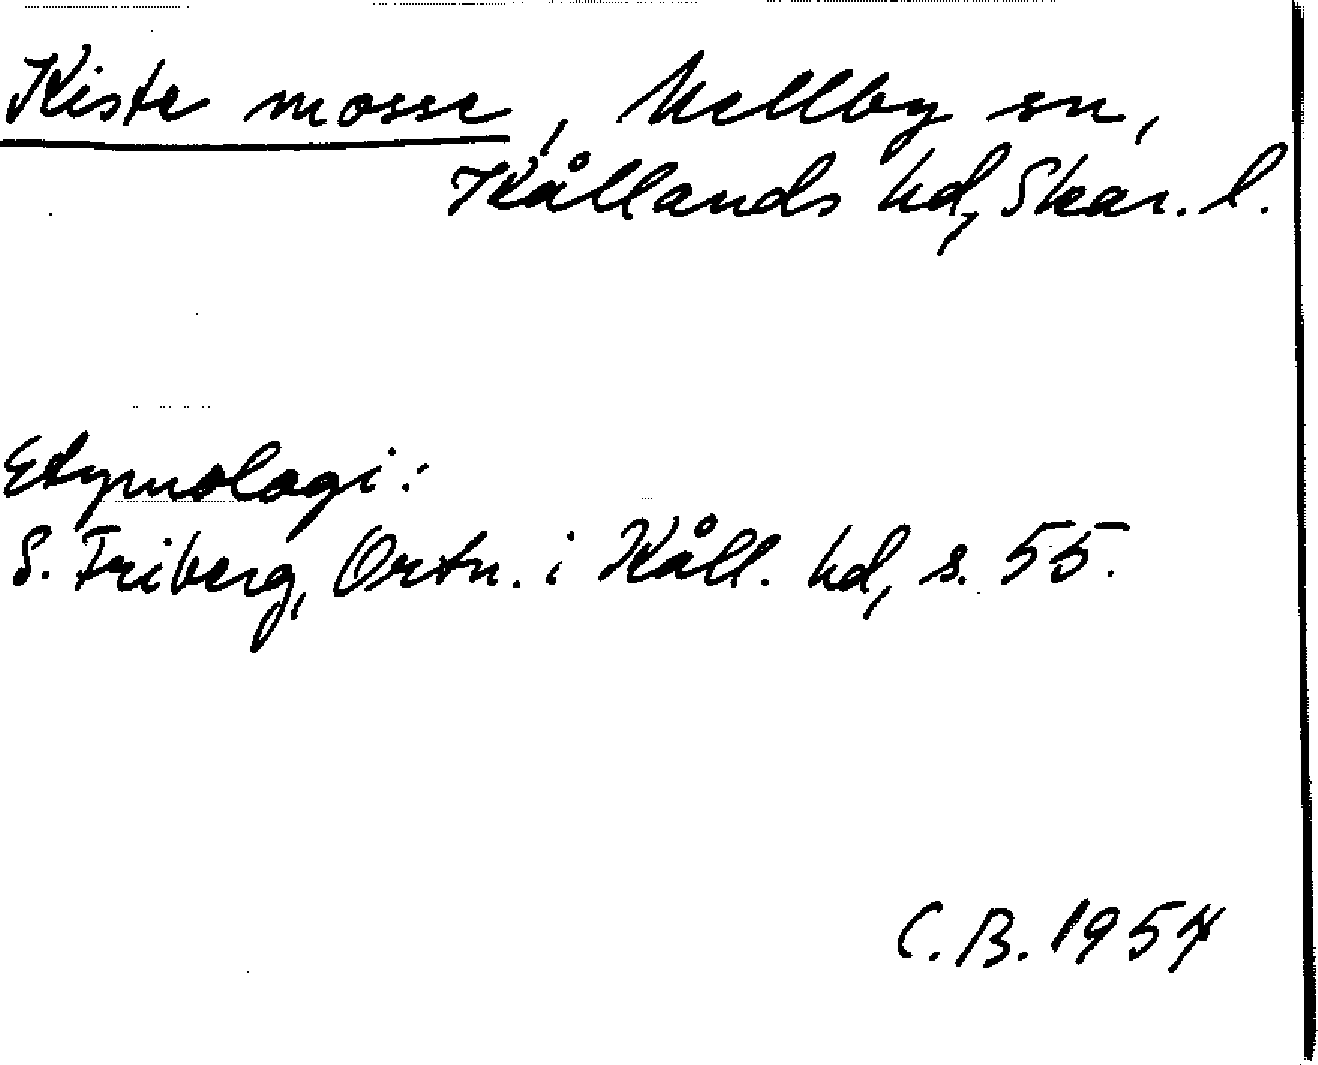 Kiste mosse, Mellby sn,
Kållands hd, Skar. l.
Etymologi:
S. Friberg, Ortn. i Kåll. hd, s. 55.
C. B. 1954